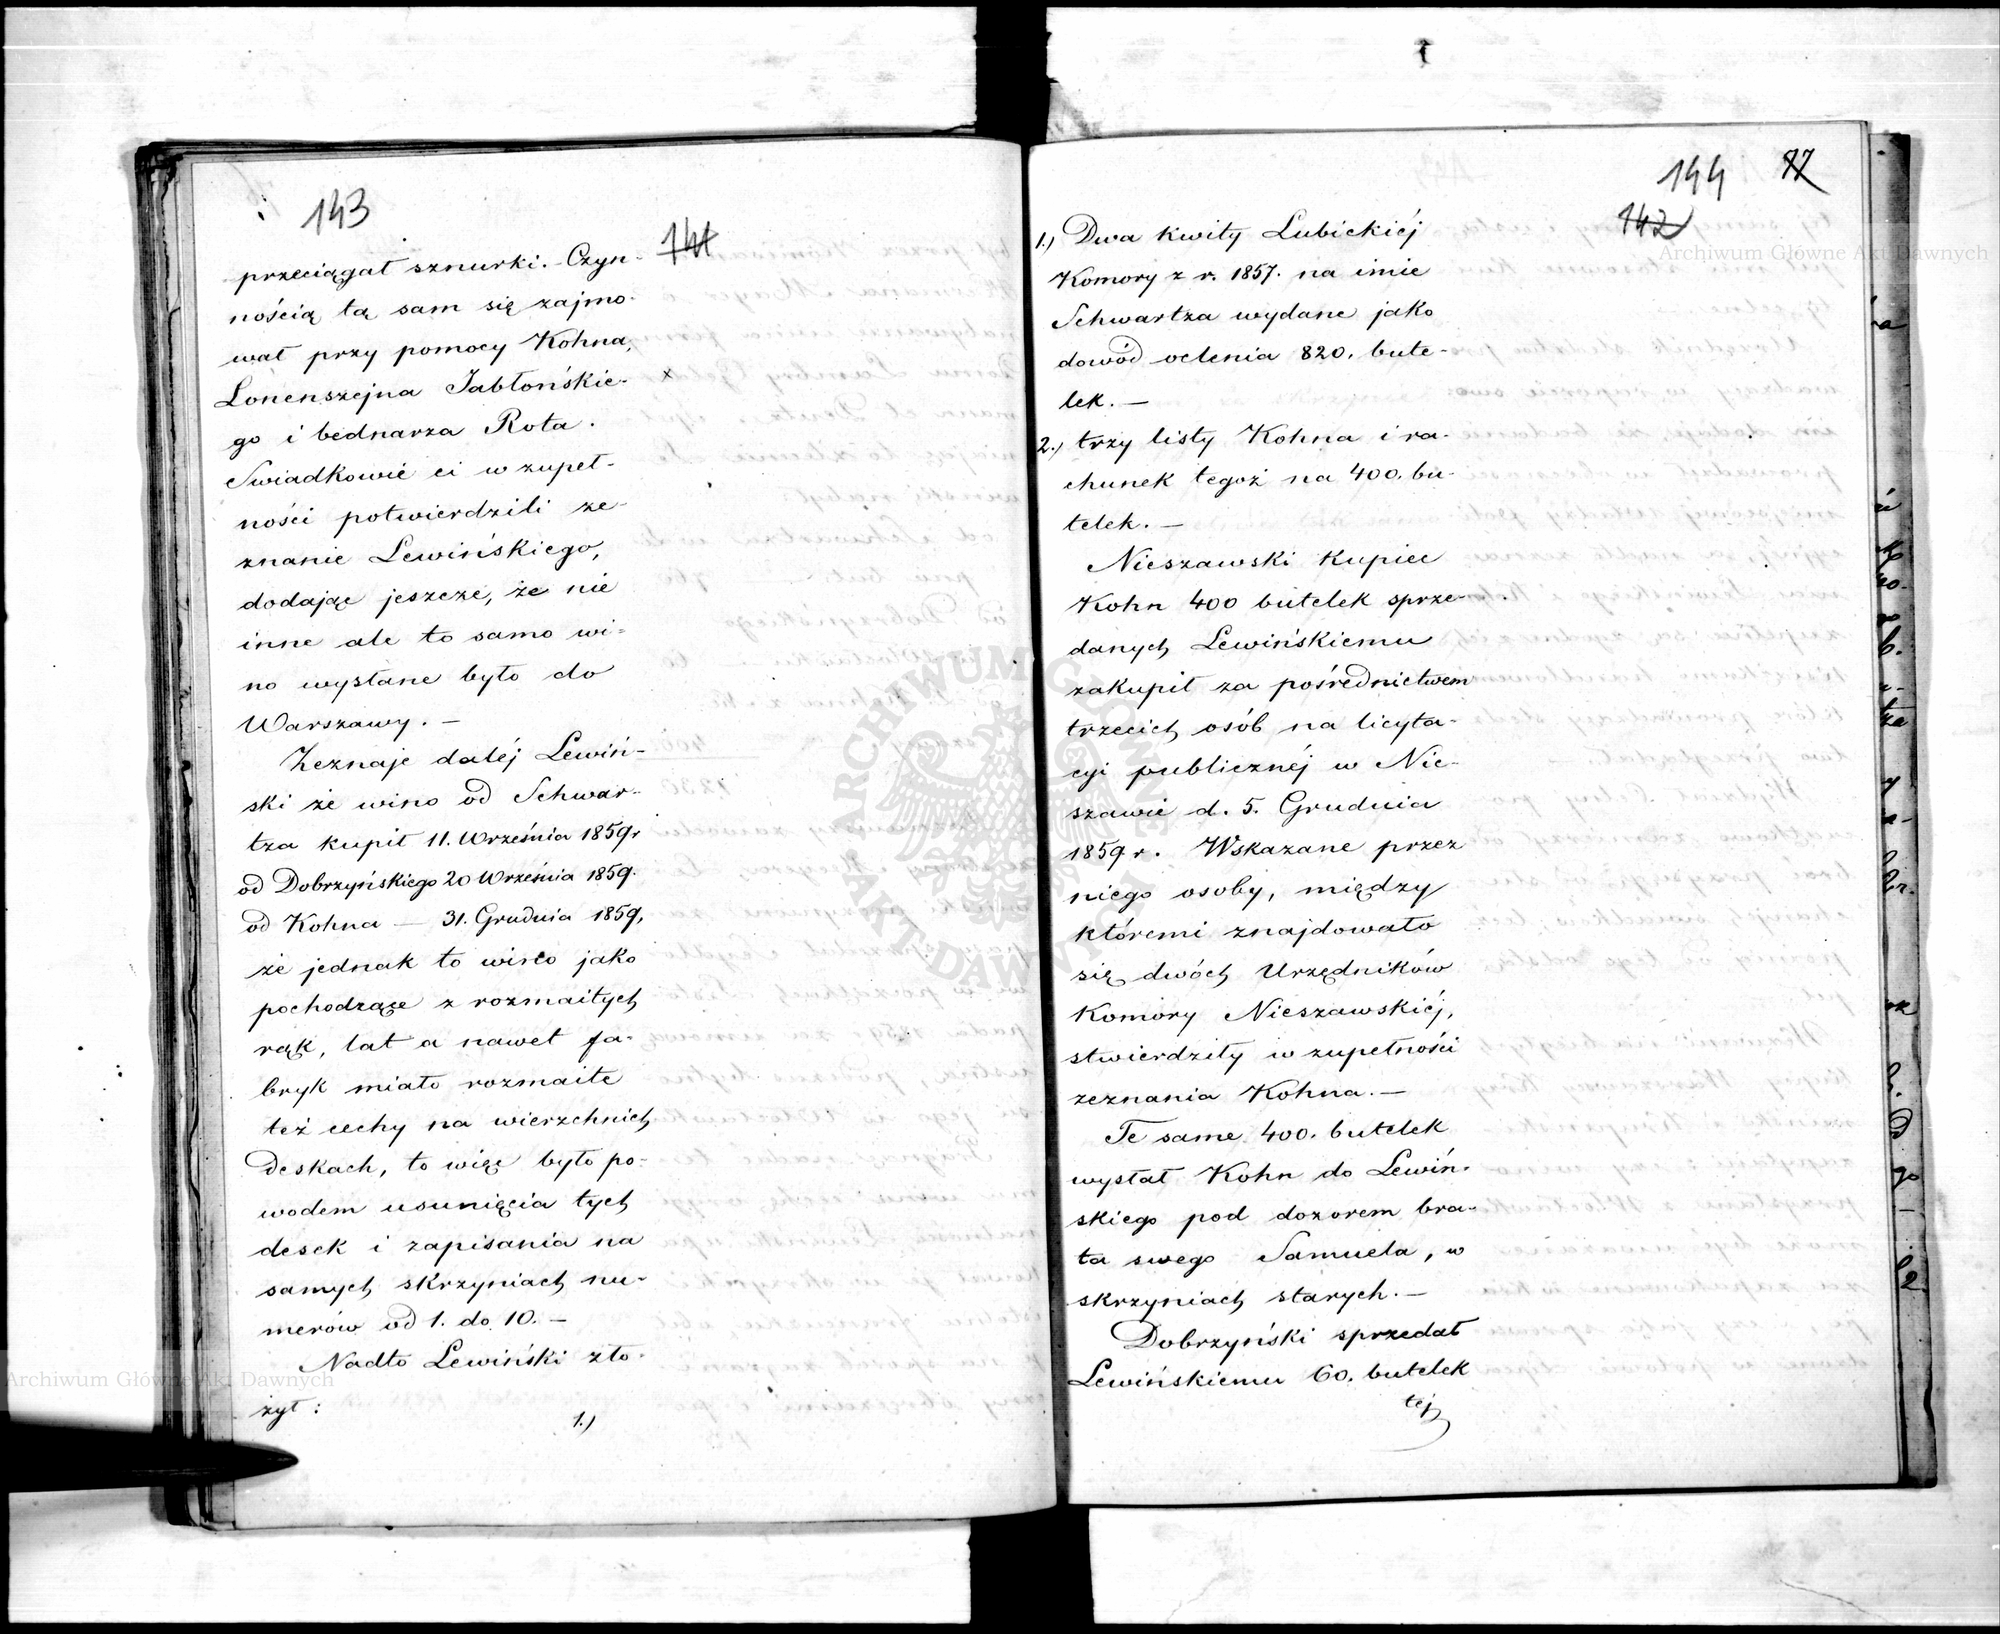 143
141
przeciągał sznurki. Czyn-
nością tą sam się zajmo-
wał przy pomocy Kohna,
Lonenszejna Jabłońskie- x
go i bednarza Rota.
Swiadkowie ci w zupeł-
ności potwierdzili ze-
znanie Lewińskiego,
dodając jeszcze, że nie
inne ale to samo wi-
no wysłane było do
Warszawy. —
Zeznaje daléj Lewiń-
ski że wino od Schwar-
tza kupił 11. Września 1859r
od Dobrzyńskiego 20 Września 1859.
od Kohna — 31. Grudnia 1859,
że jednak to wino jako
pochodzące z rozmaitych
rąk, lat a nawet fa-
bryk miało rozmaite
też cechy na wierzchnich
deskach, to więc było po-
wodem usunięcia tych
desek i zapisania na
samych skrzyniach nu-
merów od 1. do 10. —
Nadto Lewiński zło-
żył:
1.)
144 77
142
1.) Dwa kwity Lubickiéj
Komory z r. 1857. na imie
Schwartza wydane jako
dowód oclenia 820. bute-
lek. —
2.) trzy listy Kohna i ra-
chunek tegoż na 400. bu-
telek. —
Nieszawski Kupiec
Kohn 400 butelek sprze-
danych Lewińskiemu
zakupił za pośrednictwem
trzecich osób na licyta-
cyi publicznéj w Nie-
szawie d. 5. Grudnia
1859 r. Wskazane przez
niego osoby, między
któremi znajdowało
się dwóch Urzędników
Komory Nieszawskiéj,
stwierdziły w zupełności
zeznania Kohna. —
Te same 400. butelek
wysłał Kohn do Lewiń-
skiego pod dozorem bra-
ta swego Samuela, w
skrzyniach starych. —
Dobrzyński sprzedał
Lewińskiemu 60. butelek
téj
Archiwum Główne Akt Dawnych
Archiwum Główne Akt Dawnych
ARCHIWUM GŁÓWNE AKT DAWNYCH